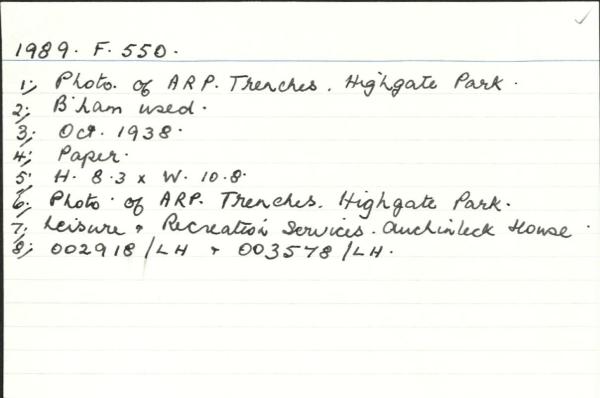 1989. F. 550.
1; Photo. of ARP. Trenches. Highgate Park.
2; B'ham used.
3; Oct. 1938.
4; Paper.
5; H. 8.3 x W. 10.8.
6; Photo. of ARP. Trenches. Highgate Park.
7; Leisure + Recreation Services. Auchinleck House.
8; 002918/LH + 003578/LH.